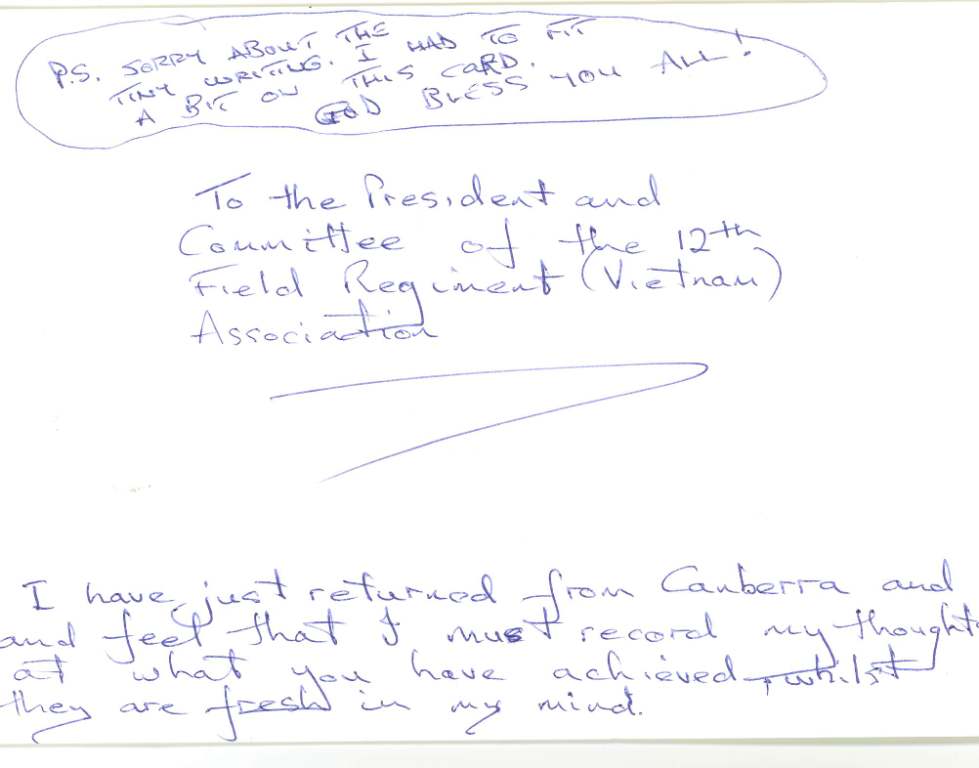 P.S. SORRY ABOUT THE
TINY WRITING. I HAD TO FIT
A BIT ON THIS CARD.
GOD BLESS YOU ALL!
To the President and
Committee of the 12th
Field Regiment (Vietnam)
Association
I have just returned from Canberra and
and feel that I must record my thoughts
at what you have achieved, whilst
they are fresh in my mind.